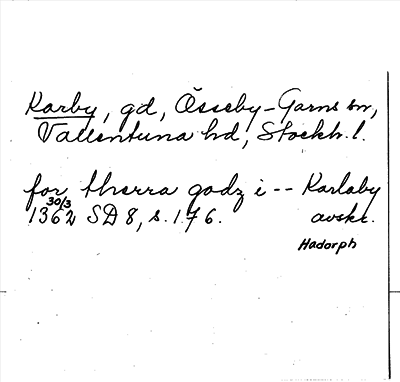 Karby, gd, Össeby-Garns sn,
Vallentuna hd, Stockh. l.
for therra godz i -- Karlaby
30/3
1362 SD 8, s. 176. avskr.
Hadorph